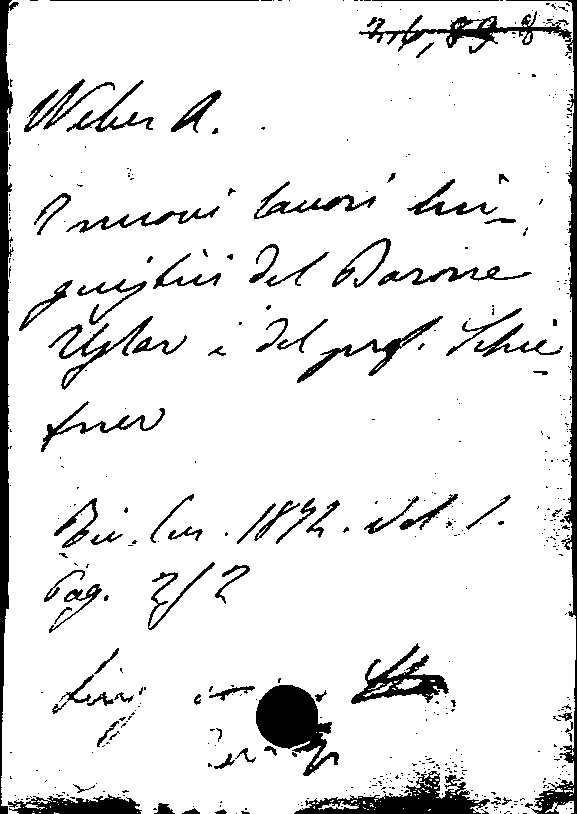 Weber A.
I nuovi lavori lin-
guistici del Barone
Uslar e del prof. Schie-
fner
Riv. Eur. 1872. Vol. 1.
Pag. 212
Ling